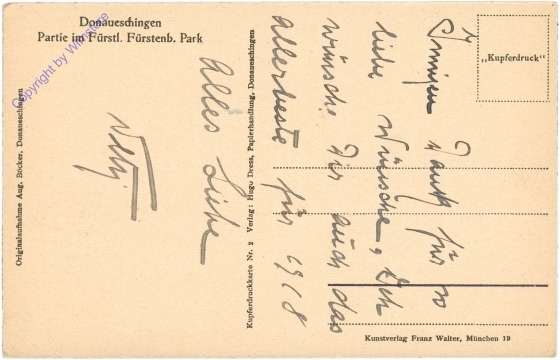 Donaueschingen
Partie im Fürstl. Fürstenb. Park
Copyright by Wiener
Originalaufnahme Aug. Böcker, Donaueschingen
Kupferdruckkarte Nr. 2 Verlag: Hugo Dress, Papierhandlung, Donaueschingen
„Kupferdruck"
Innigen Dank für so
liebe Wünsche, Ich
wünsche Dir auch das
allerbeste für 1918
Alles Liebe
Kunstverlag Franz Walter, München 19